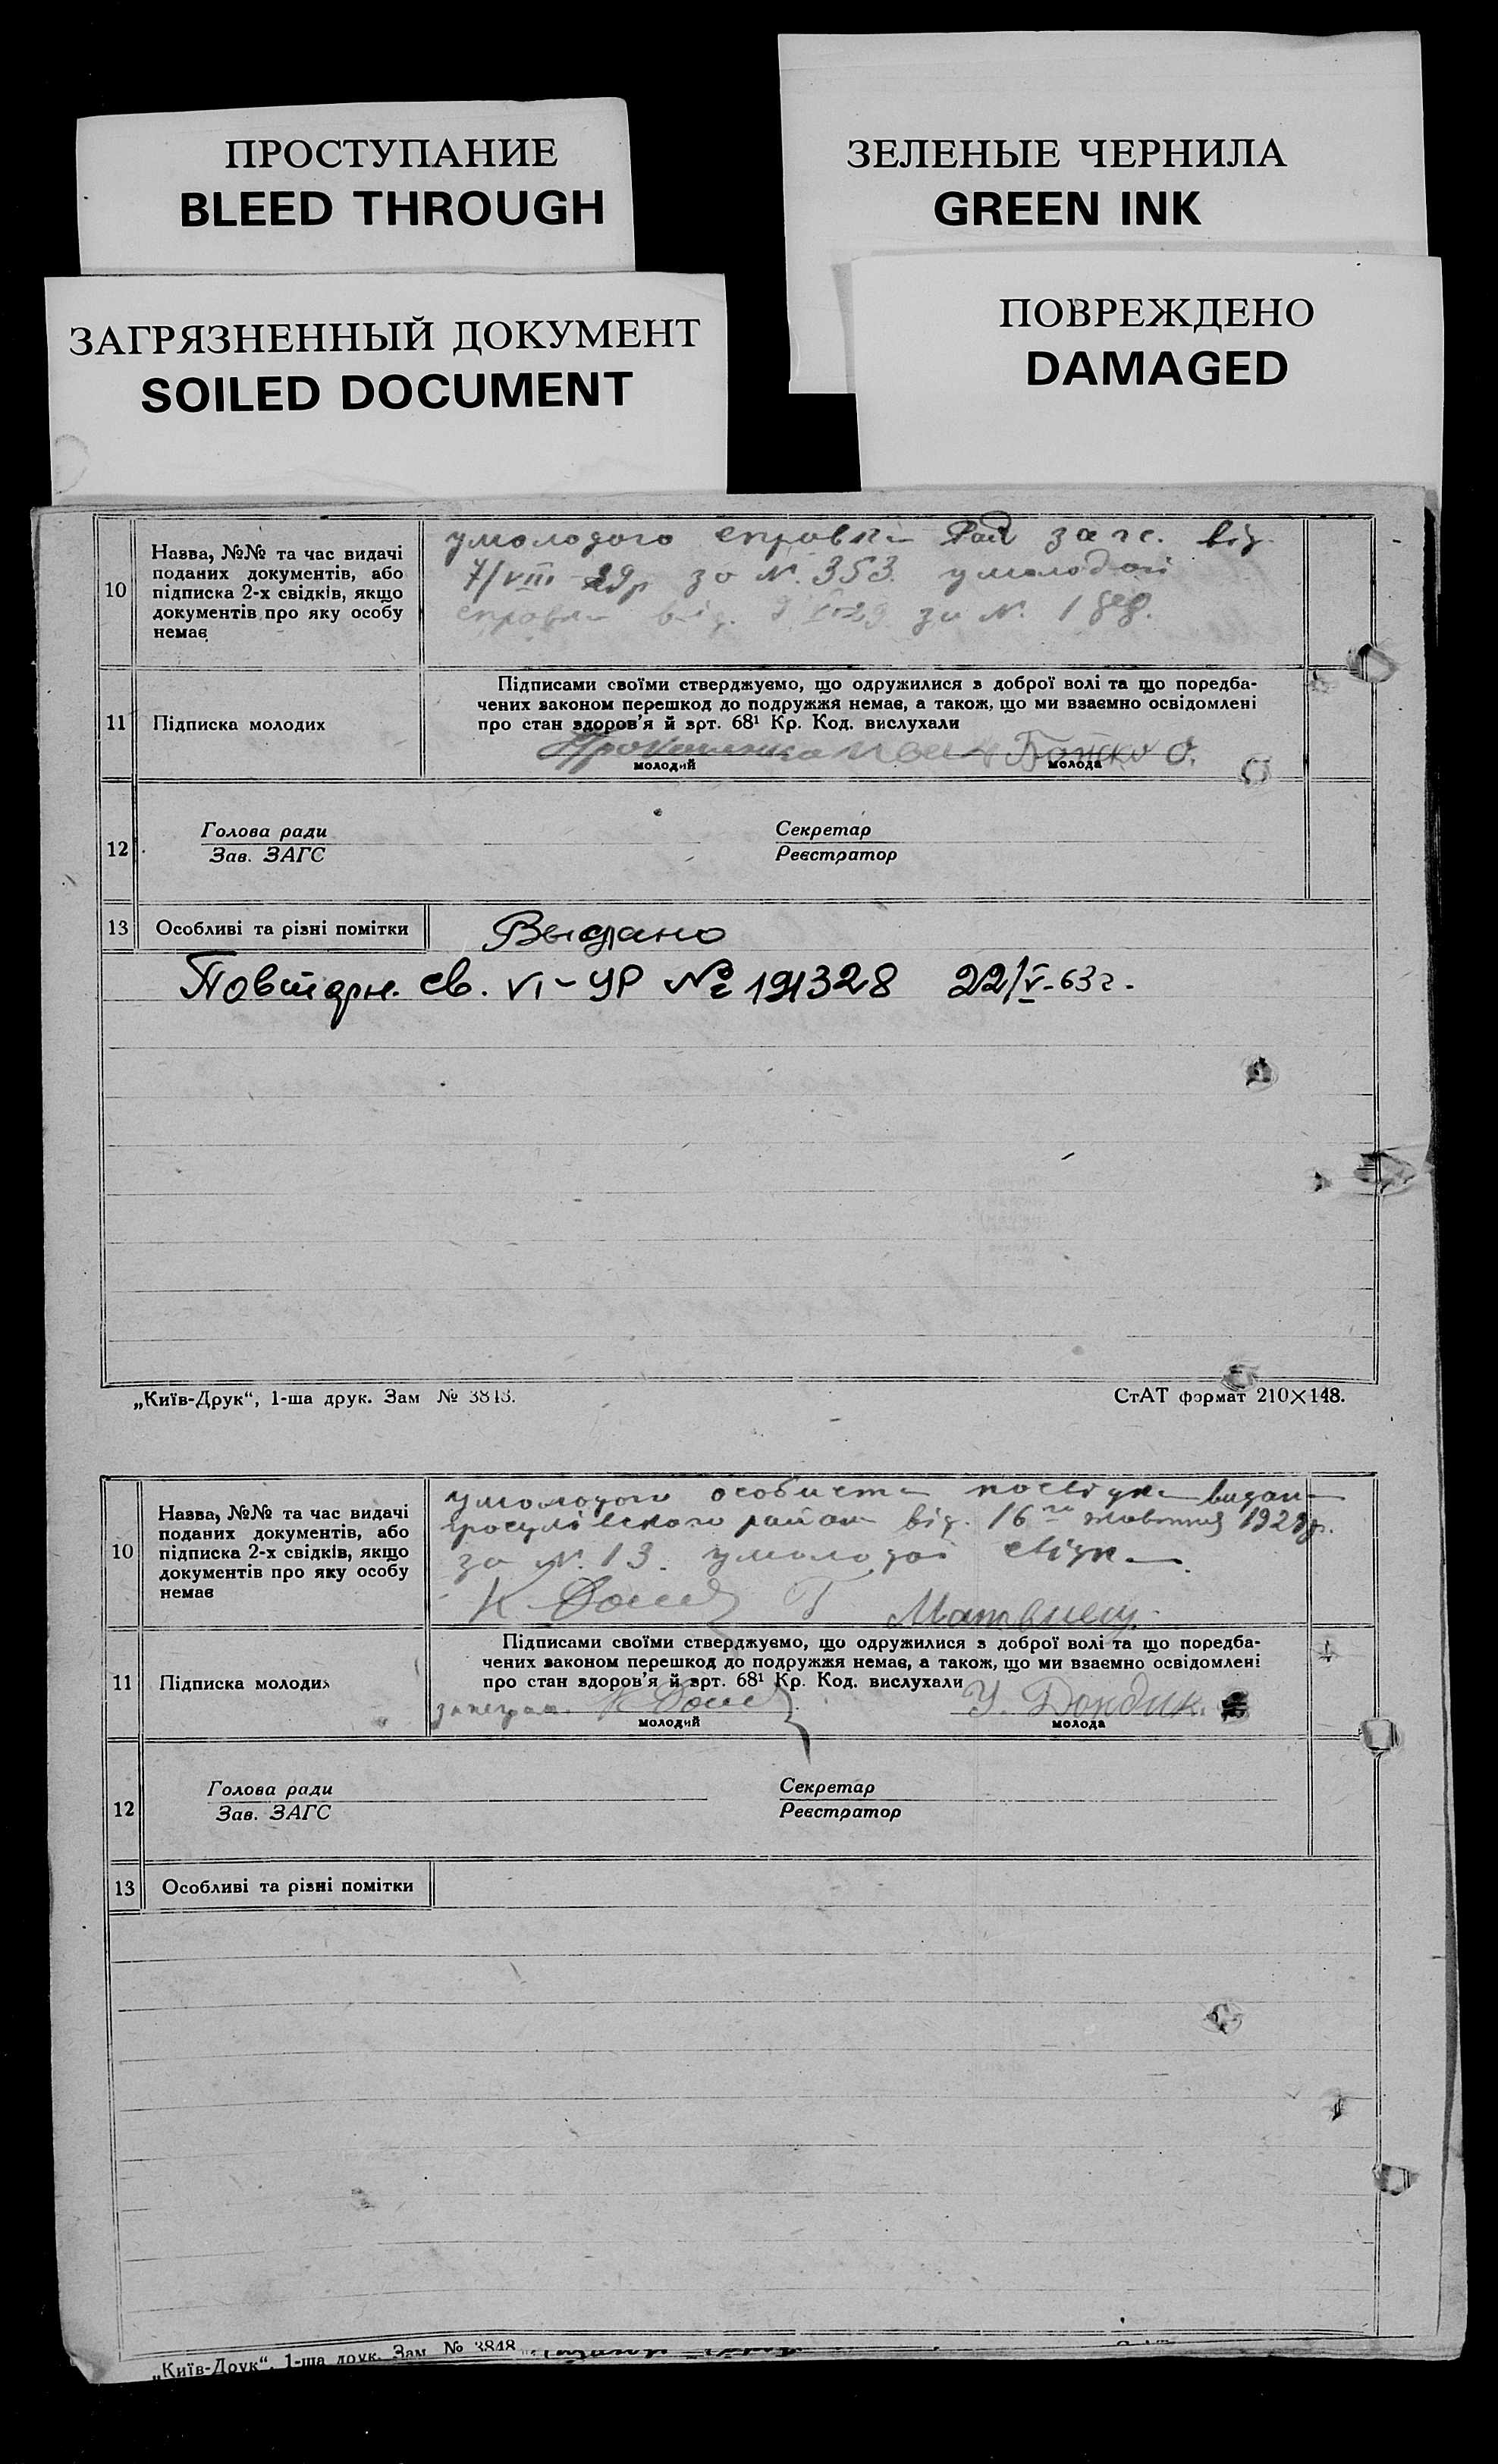 ПРОСТУПАНИЕ
BLEED THROUGH
ЗЕЛЕНЫЕ ЧЕРНИЛА
GREEN INK
ЗАГРЯЗНЕННЫЙ ДОКУМЕНТ
SOILED DOCUMENT
ПОВРЕЖДЕНО
DAMAGED
10
Назва, №№ та час видачі
поданих документів, або
підписка 2-х свідків, якщо
документів про яку особу
немає
умолодого справка Рай загс. від
7/VIII-29р за №. 353. умолодої
справка від. 29 за №. 188.
11
Підписка молодих
Підписами своїми стверджуємо, що одружилися з доброї волі та що поредба-
чених законом перешкод до подружжя немає, а також, що ми взаємно освідомлені
про стан здоров'я й арт. 68¹ Кр. Код. вислухали
Божко О.
молодий
молода
12
Голова ради
Зав. ЗАГС
Секретар
Реєстратор
13
Особливі та різні помітки
Выдано
Повторн. св. VI-УР № 191328 22/V-63г.
„Київ-Друк“, 1-ша друк. Зам № 3848.
СтАТ формат 210×148.
10
Назва, №№ та час видачі
поданих документів, або
підписка 2-х свідків, якщо
документів про яку особу
немає
умолодого особиста посвідка видана
районом від. 16 жовтня
за №. 13. умолодої свідки
К
11
Підписка молодих
Підписами своїми стверджуємо, що одружилися з доброї волі та що поредба-
чених законом перешкод до подружжя немає, а також, що ми взаємно освідомлені
про стан здоров'я й арт. 68¹ Кр. Код. вислухали
У. Дондик.
молодий
молода
12
Голова ради
Зав. ЗАГС
Секретар
Реєстратор
13
Особливі та різні помітки
„Київ-Друк“, 1-ша друк. Зам № 3848